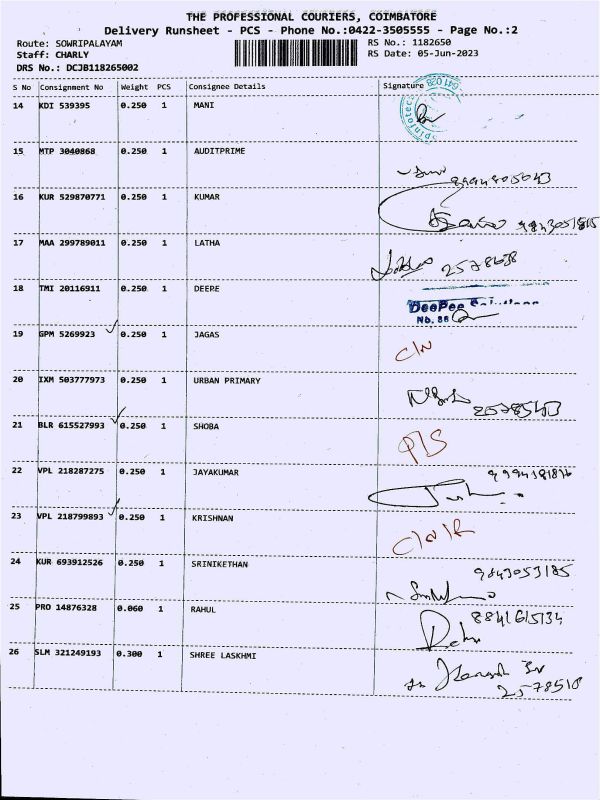 THE PROFESSIONAL COURIERS, COIMBATORE
Delivery Runsheet - PCS - Phone No.:0422-3505555 - Page No.:2
Route: SOWRIPALAYAM RS No.: 1182650
Staff: CHARLY RS Date: 05-Jun-2023
DRS No.: DCJB118265002
S No Consignment No Weight PCS Consignee Details Signature
14 KDI 539395 0.250 1 MANI
15 MTP 3040868 0.250 1 AUDITPRIME
16 KUR 529870771 0.250 1 KUMAR
17 MAA 299789011 0.250 1 LATHA
18 TMI 20116911 0.250 1 DEEPE
DeePee Solutions
No. 86
19 GPM 5269923 0.250 1 JAGAS
20 IXM 503777973 0.250 1 URBAN PRIMARY
21 BLR 615527993 0.250 1 SHOBA
22 VPL 218287275 0.250 1 JAYAKUMAR
23 VPL 218799893 0.250 1 KRISHNAN
24 KUR 693912526 0.250 1 SRINIKETHAN
9843053185
25 PRO 14876328 0.060 1 RAHUL
26 SLM 321249193 0.300 1 SHREE LASKHMI